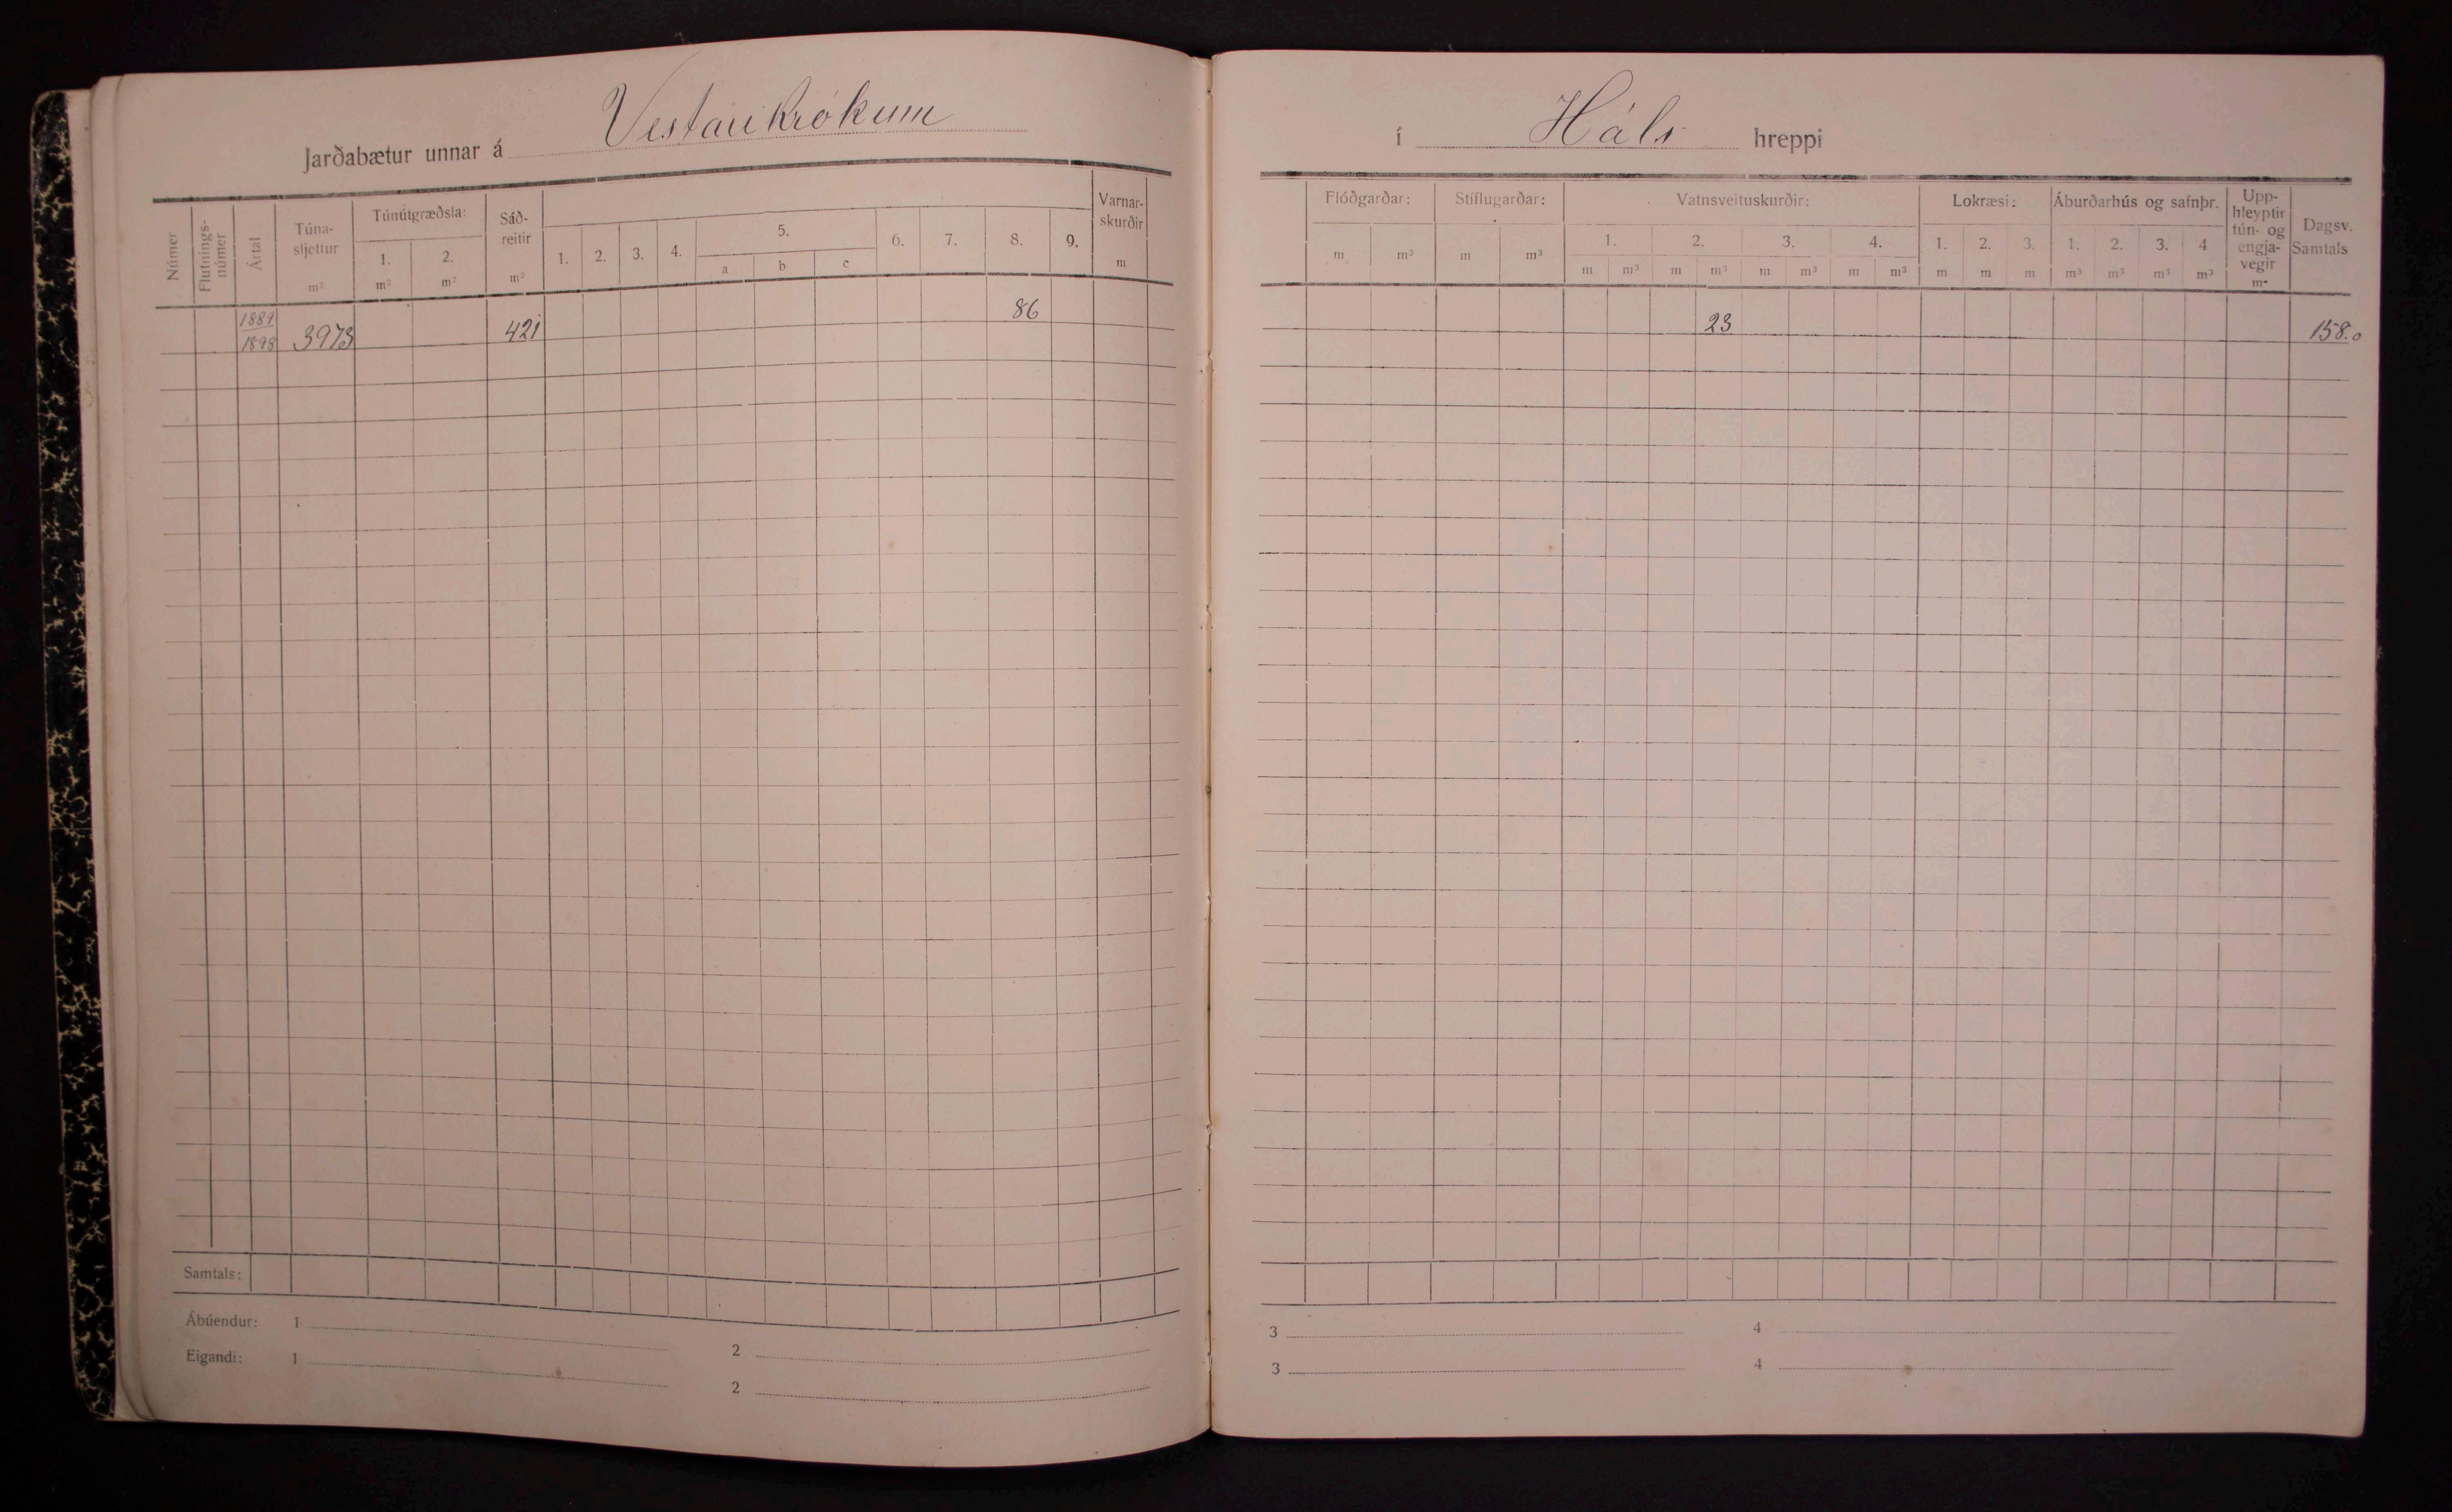 Jarðabætur unnar á Vestari Krókum
Númer Flutnings-númer Ártal Túna-sljettur m² Túnútgræðsla: 1. m² 2. m² Sáð-reitir m² 1. 2. 3. 4. 5. a b c 6. 7. 8. 9. Varnar-skurðir m
1889 86
1898 3973 421
Samtals:
Ábúendur: 1 2
Eigandi: 1 2
í Háls hreppi
Flóðgarðar: Stíflugarðar: Vatnsveituskurðir: Lokræsi: Áburðarhús og safnþr. Upp-hleyptir tún- og engja-vegir m² Dagsv. Samtals
1. 2. 3. 4. 1. 2. 3. 1. 2. 3. 4
m m³ m m³ m m³ m m³ m m³ m m³ m m m m³ m³ m³ m³
23 158.0
3 4
3 4